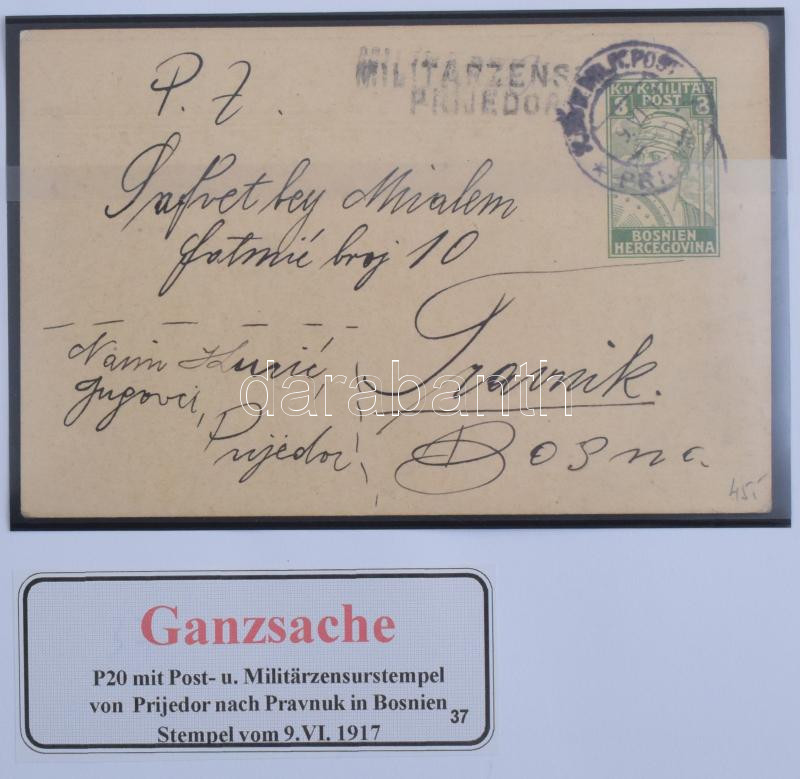 P. Z.
MILITÄRZENS
PRIJEDOR
K.u.K. MILIT. POST
K.u.K. MILITÄR
3 POST 3
BOSNIEN
HERCEGOVINA
Safvet bey Miralem
fatmić broj 10
Travnik.
Bosna.
Naim Kurić,
Jugovci,
Prijedor
45.-
darabanth
Ganzsache
P20 mit Post- u. Militärzensurstempel
von Prijedor nach Pravnuk in Bosnien
37
Stempel vom 9.VI. 1917